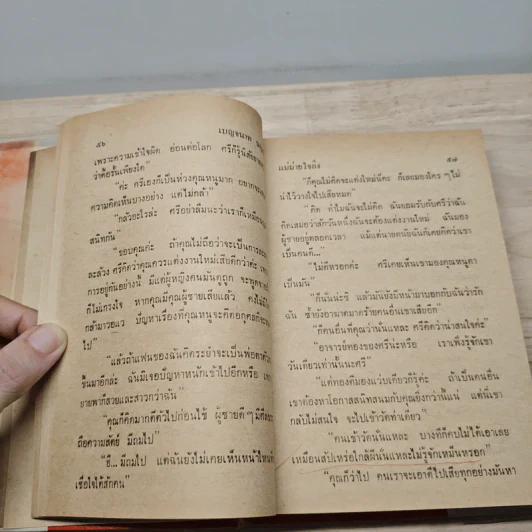 ๕๖
เบญจนาท
เพราะความเข้าใจผิด อ่อนต่อโลก ศรีก็รู้นิสัย
ว่าดื้อรั้นเพียงใด”
“ค่ะ ศรีเองก็เป็นห่วงคุณหนูมาก อยาก
ความคิดเห็นบางอย่าง แต่ไม่กล้า”
“กลัวอะไรล่ะ ศรีอย่าลืมนะว่าเราก็เหมือน
สนิทกัน”
“ขอบคุณค่ะ ถ้าคุณไม่ถือว่าจะเป็นการ
ละล้วง ศรีคิดว่าคุณควรแต่งงานใหม่เสียดีกว่าค่ะ
การอยู่กันอย่างนี้ มีแต่ผู้หญิงคนมันดูถูก จะพูด
ก็ไม่เกรงใจ หากคุณมีคุณผู้ชายเสียแล้ว คงไม่
กล้ามาวอแว ปัญหาเรื่องที่คุณหนูจะคิดอกุศลก็
ไป”
“แล้วถ้าแฟนของฉันคิดระยำจะเป็นพ่อตา
ขึ้นมาอีกล่ะ ฉันมิเจอปัญหาหนักเข้าไปอีกหรือ
ยายพาก็สวยและสาวกว่าฉัน”
“คุณก็คิดมากตีตัวไปก่อนไข้ ผู้ชายดีๆ มี
ถือความสัตย์ มีถมไป”
“ฮึ... มีถมไป แต่ฉันยังไม่เคยเห็นหน้าไหน
เชื่อใจได้สักคน”
แม่ม่ายใจถึง
๕๗
“ก็คุณไม่คิดจะแต่งใหม่นี่คะ ก็เลยมองใคร ๆ ไม่
น่าไว้วางใจไปเสียหมด”
“คิด ทำไมฉันจะไม่คิด ฉันยอมรับกับศรีว่าฉัน
คิดเสมอว่าสักวันหนึ่งฉันจะต้องแต่งงานใหม่ ฉันมอง
ผู้ชายอยู่ตลอดเวลา แม้แต่นายคนัยฉันก็เคยคิดว่าเขา
เป็นคนดี...”
“ไม่ดีหรอกค่ะ ศรีเคยเห็นเขามองคุณหนูตา
เป็นมัน”
“ก็นั่นน่ะซิ แล้วมันยังมีหน้ามาบอกกับฉันว่ารัก
ฉัน ซ้ำยังอาฆาตมาดร้ายคนอื่นเขาเสียอีก”
“ก็คนอื่นที่คุณว่านั่นแหละ ศรีคิดว่าน่าสนใจค่ะ”
“อาจารย์ทองของศรีน่ะหรือ เราเพิ่งรู้จักเขา
วันเดียวเท่านั้นนะศรี”
“แต่ทองคีมองแวบเดียวก็รู้ค่ะ ถ้าเป็นคนอื่น
เขาต้องหาโอกาสสนิทสนมกับคุณยิ่งกว่านี้แน่ แต่นี่เขา
กลับไม่สนใจ จะไปเข้าวัดท่าเดียว”
“คนเข้าวัดนั่นแหละ บางทีก็คบไม่ได้เอาเลย
เหมือนสัปเหร่อใกล้ผีนั่นแหละไม่รู้จักเหม็นหรอก”
“คุณก็ว่าไป คนเราจะเอาดีไปเสียทุกอย่างมันหา